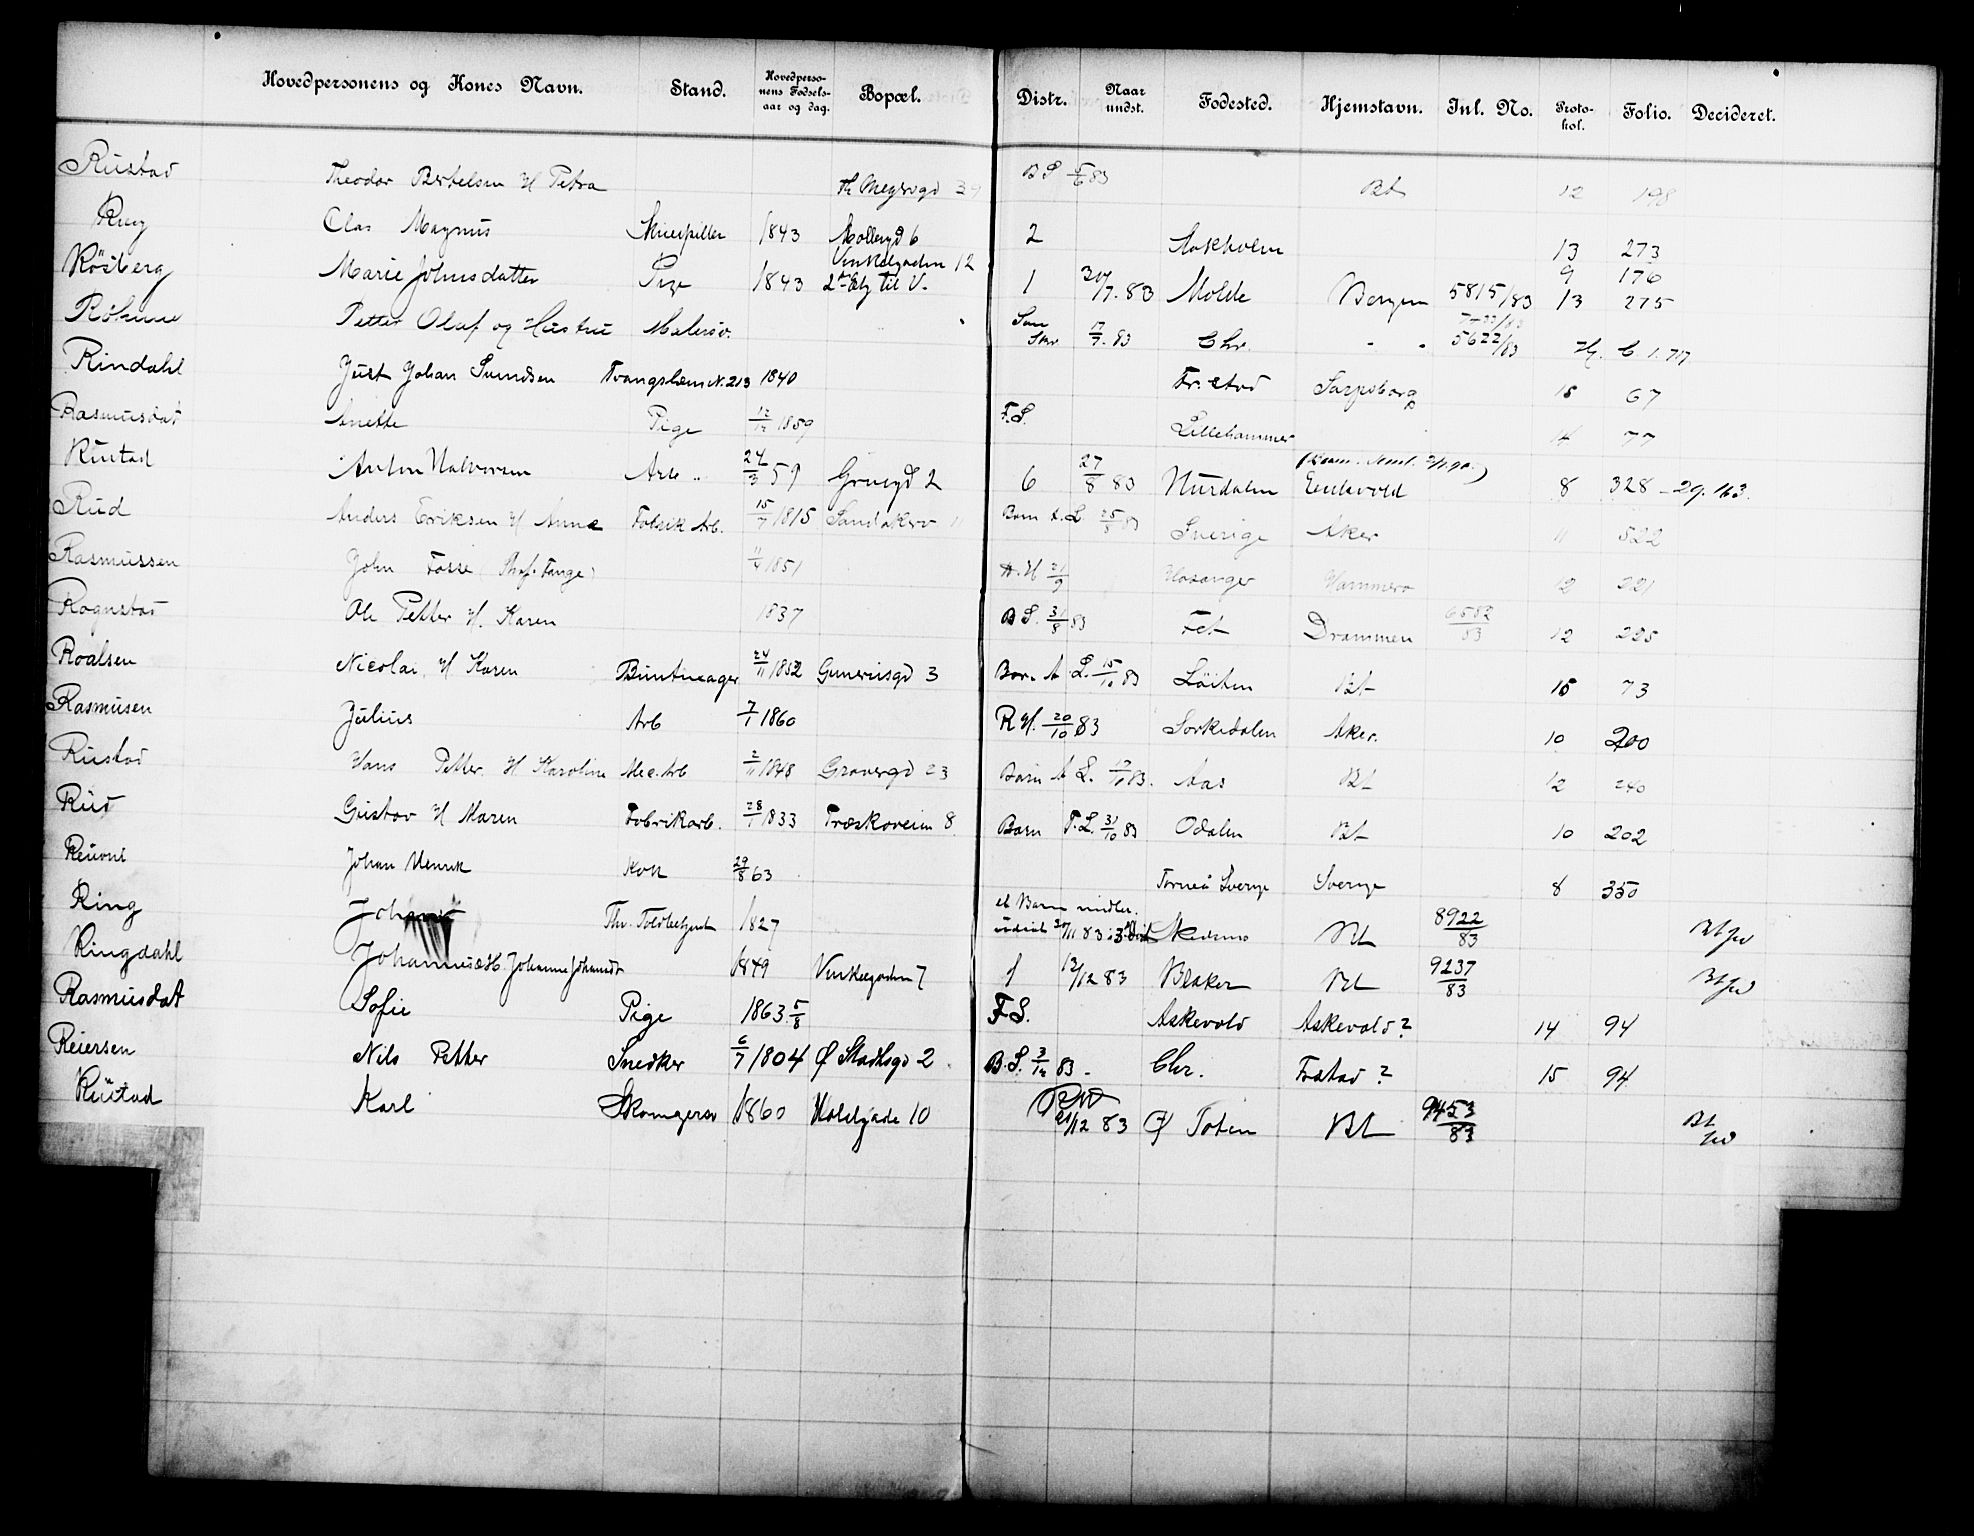 Hovedpersonens og Kones Navn. Stand. Hovedpersonens Fødselsaar og dag. Bopæl. Distr. Naar undst. Fødested. Hjemstavn. Inl. No. Protokol. Folio. Decideret.
Rustad Theodor Bertelsen H Petra Th Meyersgd B S 5/6 83 Bt 12 198
Clas Magnus Skuespiller 1843 Møllergd 6 2 Stokholm 13 273
Røsberg Marie Johnsdatter Pige 1843 Vinkelgaden 12 2den Etg til V. 1 30/7. 83 Molde Bergen 5815/83 9 176 13 275
Petter Olaf og Hustru Malersv. 17/7. 83 Chr. " " 5622/83
Rindahl Just Johan Svendsen Tvangslem N. 213 1840 Fr.stad Sarpsborg 15 67
Rasmusdat Anette Pige 12/12 1859 F.S. Lillehammer 14 77
Rustad Anton Halvorsen Arb. 24/3 59 Gruegd 2 6 27/8 83 Hurdalen Eidsvold 8 328 - 29. 163.
Rud Anders Eriksen H Anne Fabrik Arb. 15/7 1815 Sandakerv 11 Barn A. L 25/8 83 Sverige Aker 11 522
Rasmussen John Fosse 11/4 1851 A. H 21/9 Hosanger Hammer 12 221
Rognstad Ole Petter H. Karen 1837 B S. 31/8 83 Fet Drammen 6582/83 12 225
Roalsen Nicolai H Karen Buntmager 24/11 1852 Gunerusgd 3 Barn A. L. 15/10 83 Løiten Bt 15 73
Rasmusen Julius Arb 7/1 1860 R H. 20/10 83 Sørkedalen Aker. 10 200
Rustad Hans Petter. H Karoline Mec. Arb 2/11 1848 Gravergd 23 Barn A L. 83. Aas Bt 12 240
Rud Gustav H Maren Fabrikarb. 28/1 1833 Træskoveien 8 Barn F. L. 31/10 83 Odalen Bt 10 202
Johan Henrik Kok 29/8 63 Torneå Sverige Sverige 8 350
Ring Johan Thv. Toldbetjent 1827 et Barn midler. 83 Bt 8922/83 Bt
Ringdahl Johannes H. Johanne 1849 Vinkelgaden 7 1 12/12 83 Blaker Bt 9237/83 Bt
Rasmusdat Sofie Pige 1863 5/8 F S. Askevold Askevold? 14 94
Reiersen Nils Petter Snedker 6/7 1804 Ø Slotsgd 2 B. S. 3/12 83 - Chr. Fr.stad? 15 94
Rustad Karl Skomagersv 1860 Holsgade 10 21/12 83 Ø Toten Bt 9453/83 Bt